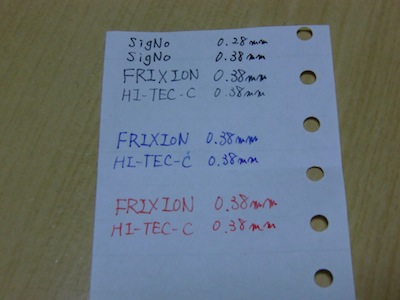 SigNo 0.28mm
SigNo 0.38mm
FRIXION 0.38mm
HI-TEC-C 0.38mm
FRIXION 0.38mm
HI-TEC-C 0.38mm
FRIXION 0.38mm
HI-TEC-C 0.38mm